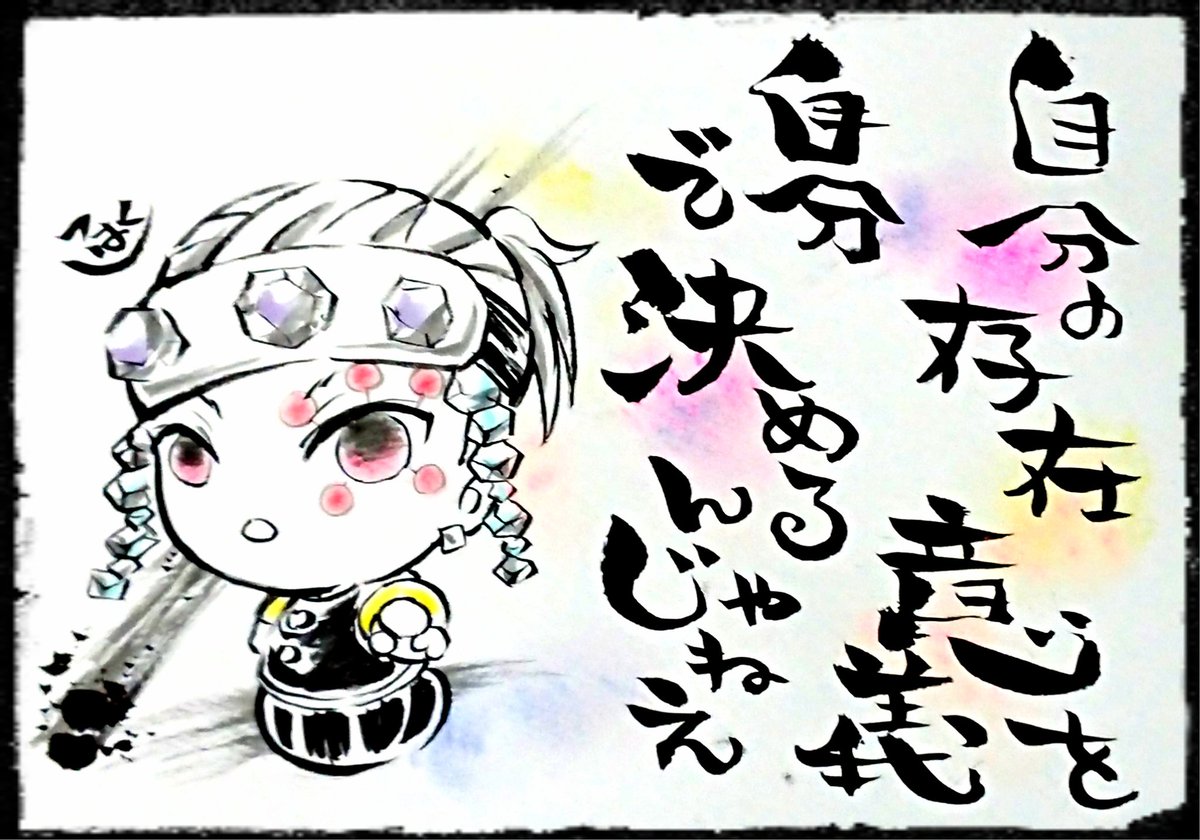 自分の存在意義を
自分で決めるんじゃねえ
こはく